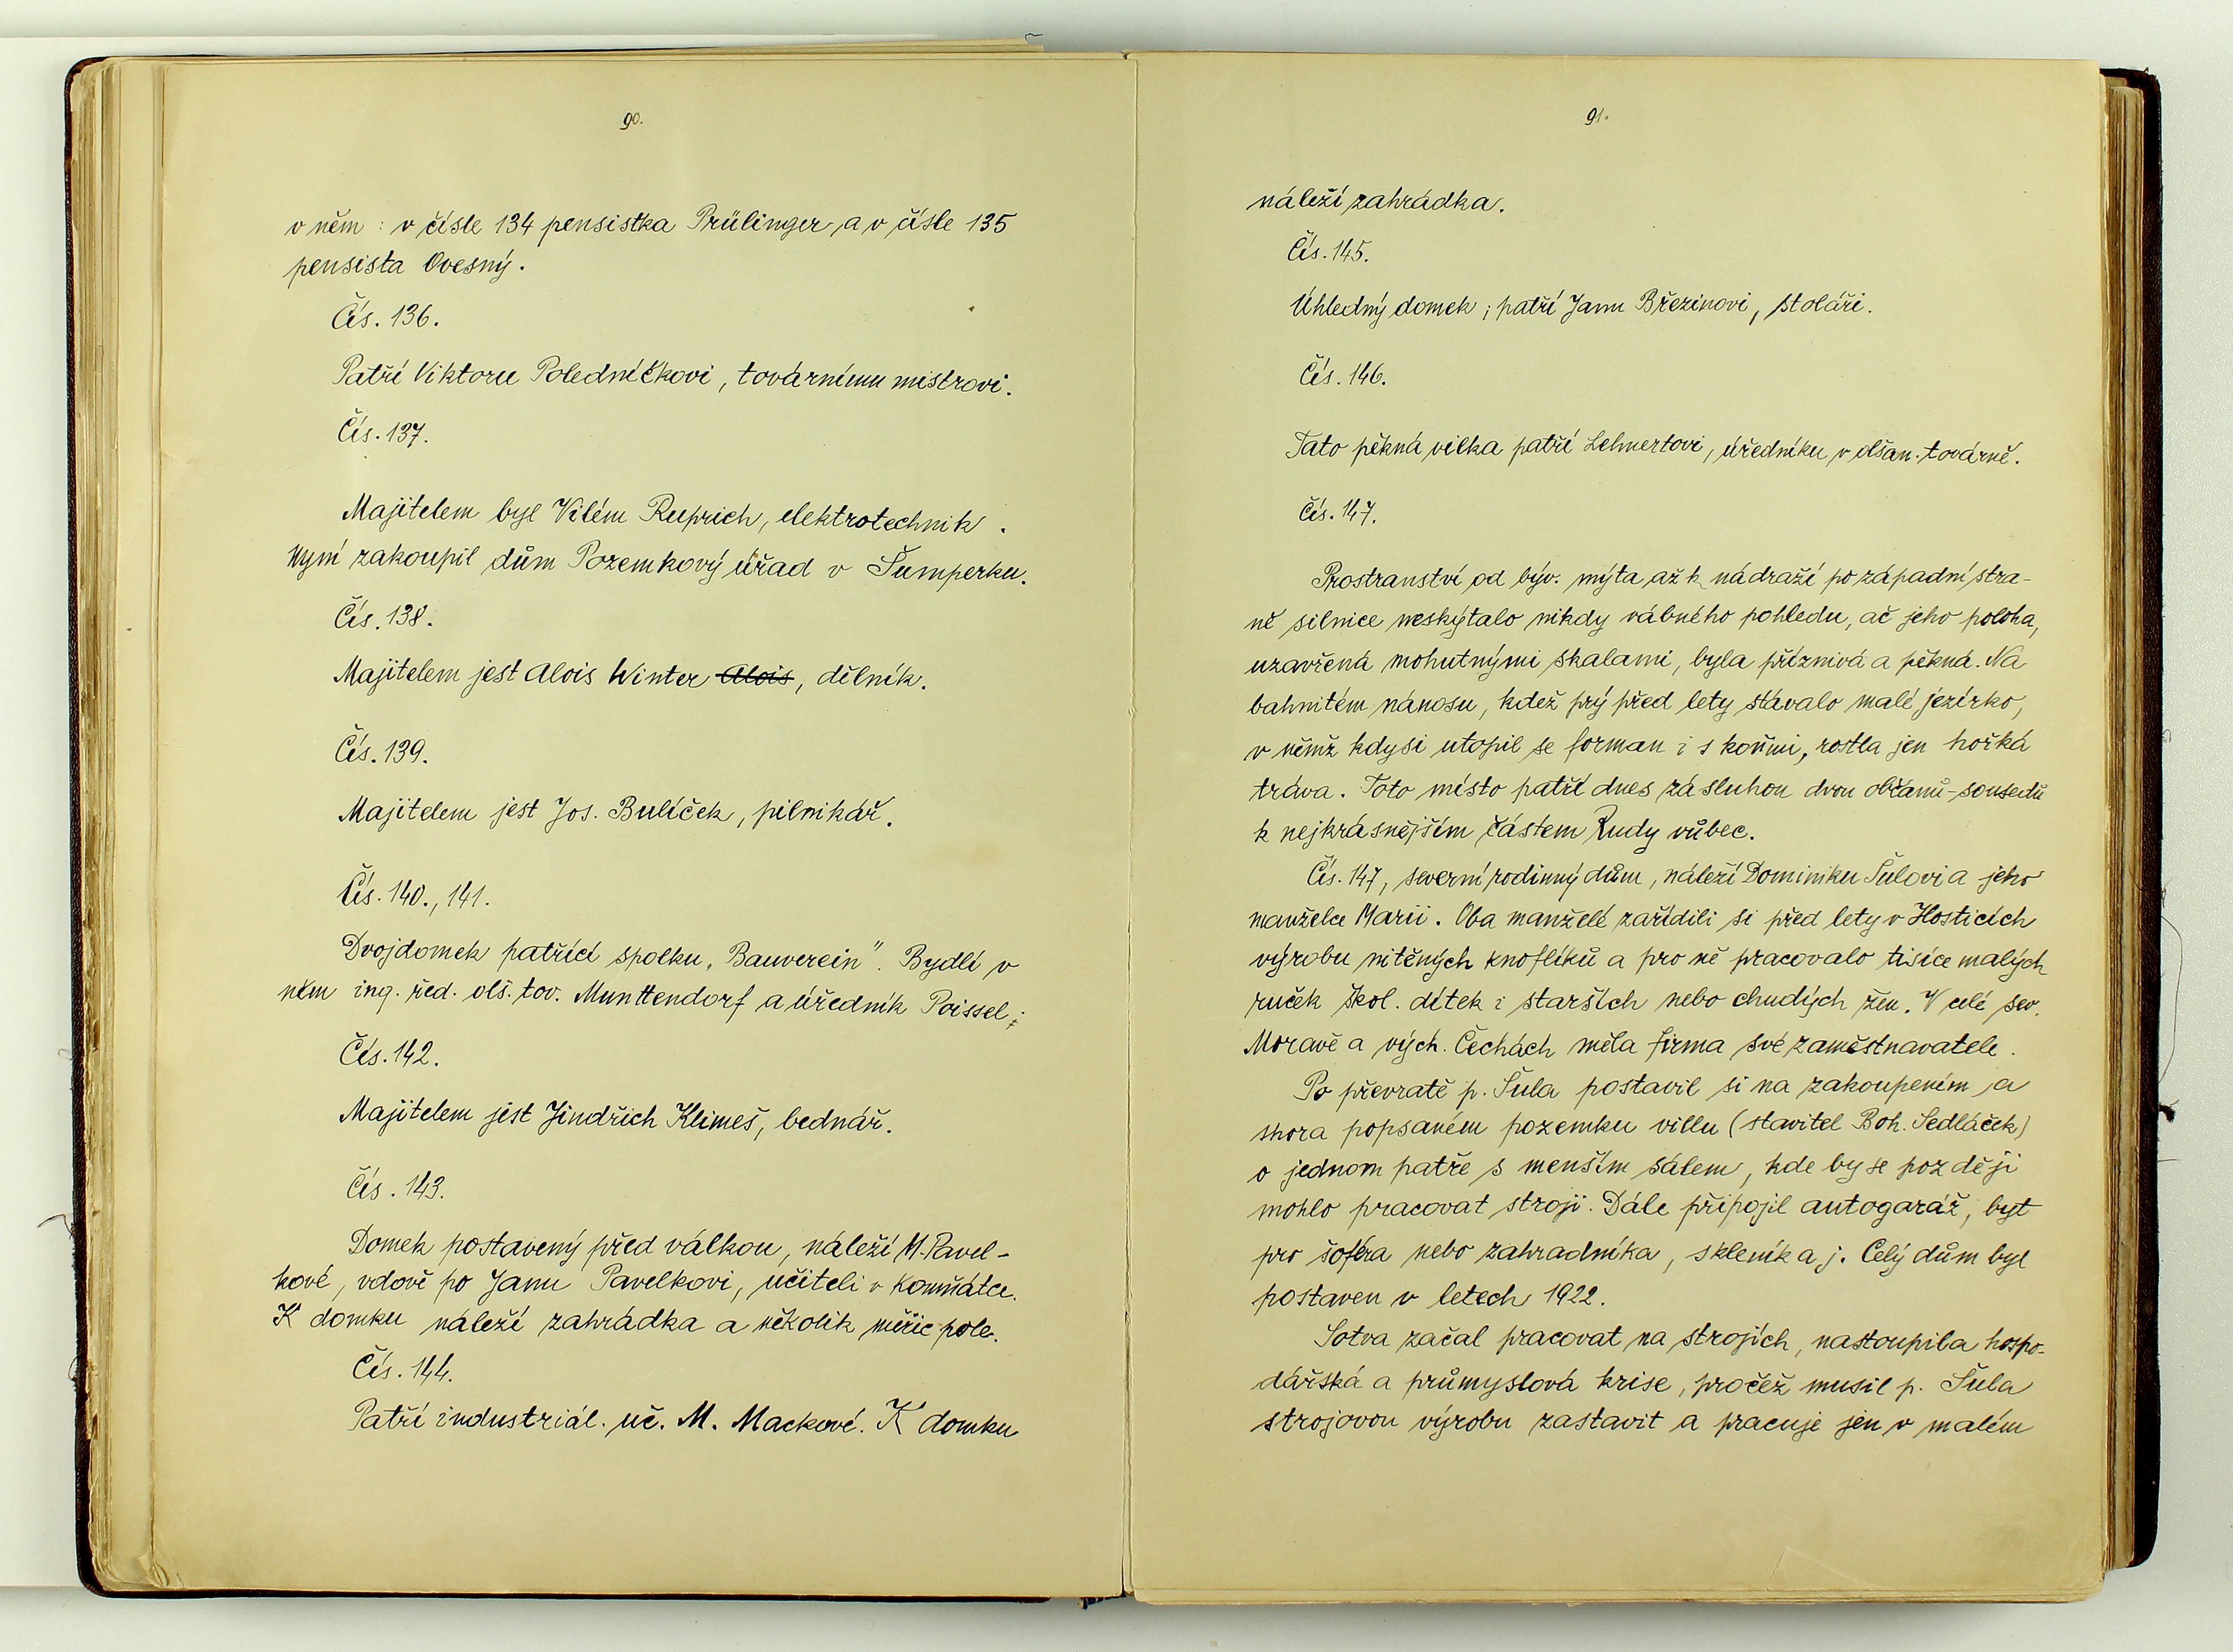 90.
v něm : v čísle 134 pensistka Prülinger, a v čísle 135
pensista Ovesný.
Čís. 136.
Patří Viktoru Poledníčkovi, továrnímu mistrovi.
Čís. 137.
Majitelem byl Vilém Ruprich, elektrotechnik.
Nyní zakoupil dům Pozemkový úřad v Šumperku.
Čís. 138.
Majitelem jest Alois Winter Alois, dělník.
Čís. 139.
Majitelem jest Jos. Bulíček, pilnikář.
Čís. 140., 141.
Dvojdomek patřící spolku „Bauverein". Bydlí v
něm ing. řed. olš. tov. Munttendorf a úředník Poissel;
Čís. 142.
Majitelem jest Jindřich Klimeš, bednář.
Čís. 143.
Domek postavený před válkou, náleží M. Pavel-
kové, vdově po Janu Pavelkovi, učiteli v Komňátce.
K domku náleží zahrádka a několik měřic pole.
Čís. 144.
Patří industriál. uč. M. Mackové. K domku
91.
náleží zahrádka.
Čís. 145.
Úhledný domek; patří Janu Březinovi, stoláři.
Čís. 146.
Tato pěkná vilka patří Lehnertovi, úředníku v olšan. továrně.
Čís. 147.
Prostranství od býv. mýta až k nádraží po západní stra-
ně silnice neskýtalo nikdy vábného pohledu, ač jeho poloha,
uzavřená mohutnými skalami, byla příznivá a pěkná. Na
bahnitém nánosu, kdež prý před lety stávalo malé jezírko,
v němž kdysi utopil se forman i s koňmi, rostla jen hořká
tráva. Toto místo patří dnes zásluhou dvou občanů-sousedů
k nejkrásnějším částem Rudy vůbec.
Čís. 147, severní rodinný dům, náleží Dominiku Šulovi a jeho
manželce Marii. Oba manželé zařídili si před lety v Hosticích
výrobu nitěných knoflíků a pro ně pracovalo tisíce malých
ruček škol. dítek i starších nebo chudých žen. V celé sev.
Moravě a vých. Čechách měla firma své zaměstnavatele.
Po převratě p. Šula postavil si na zakoupeném a
shora popsaném pozemku villu (stavitel Boh. Sedláček)
o jednom patře s menším sálem, kde by se později
mohlo pracovat stroji. Dále připojil autogaráž, byt
pro šoféra nebo zahradníka, skleník a j. Celý dům byl
postaven v letech 1922.
Sotva začal pracovat na strojích, nastoupila hospo-
dářská a průmyslová krise, pročež musil p. Šula
strojovou výrobu zastavit a pracuje jen v malém